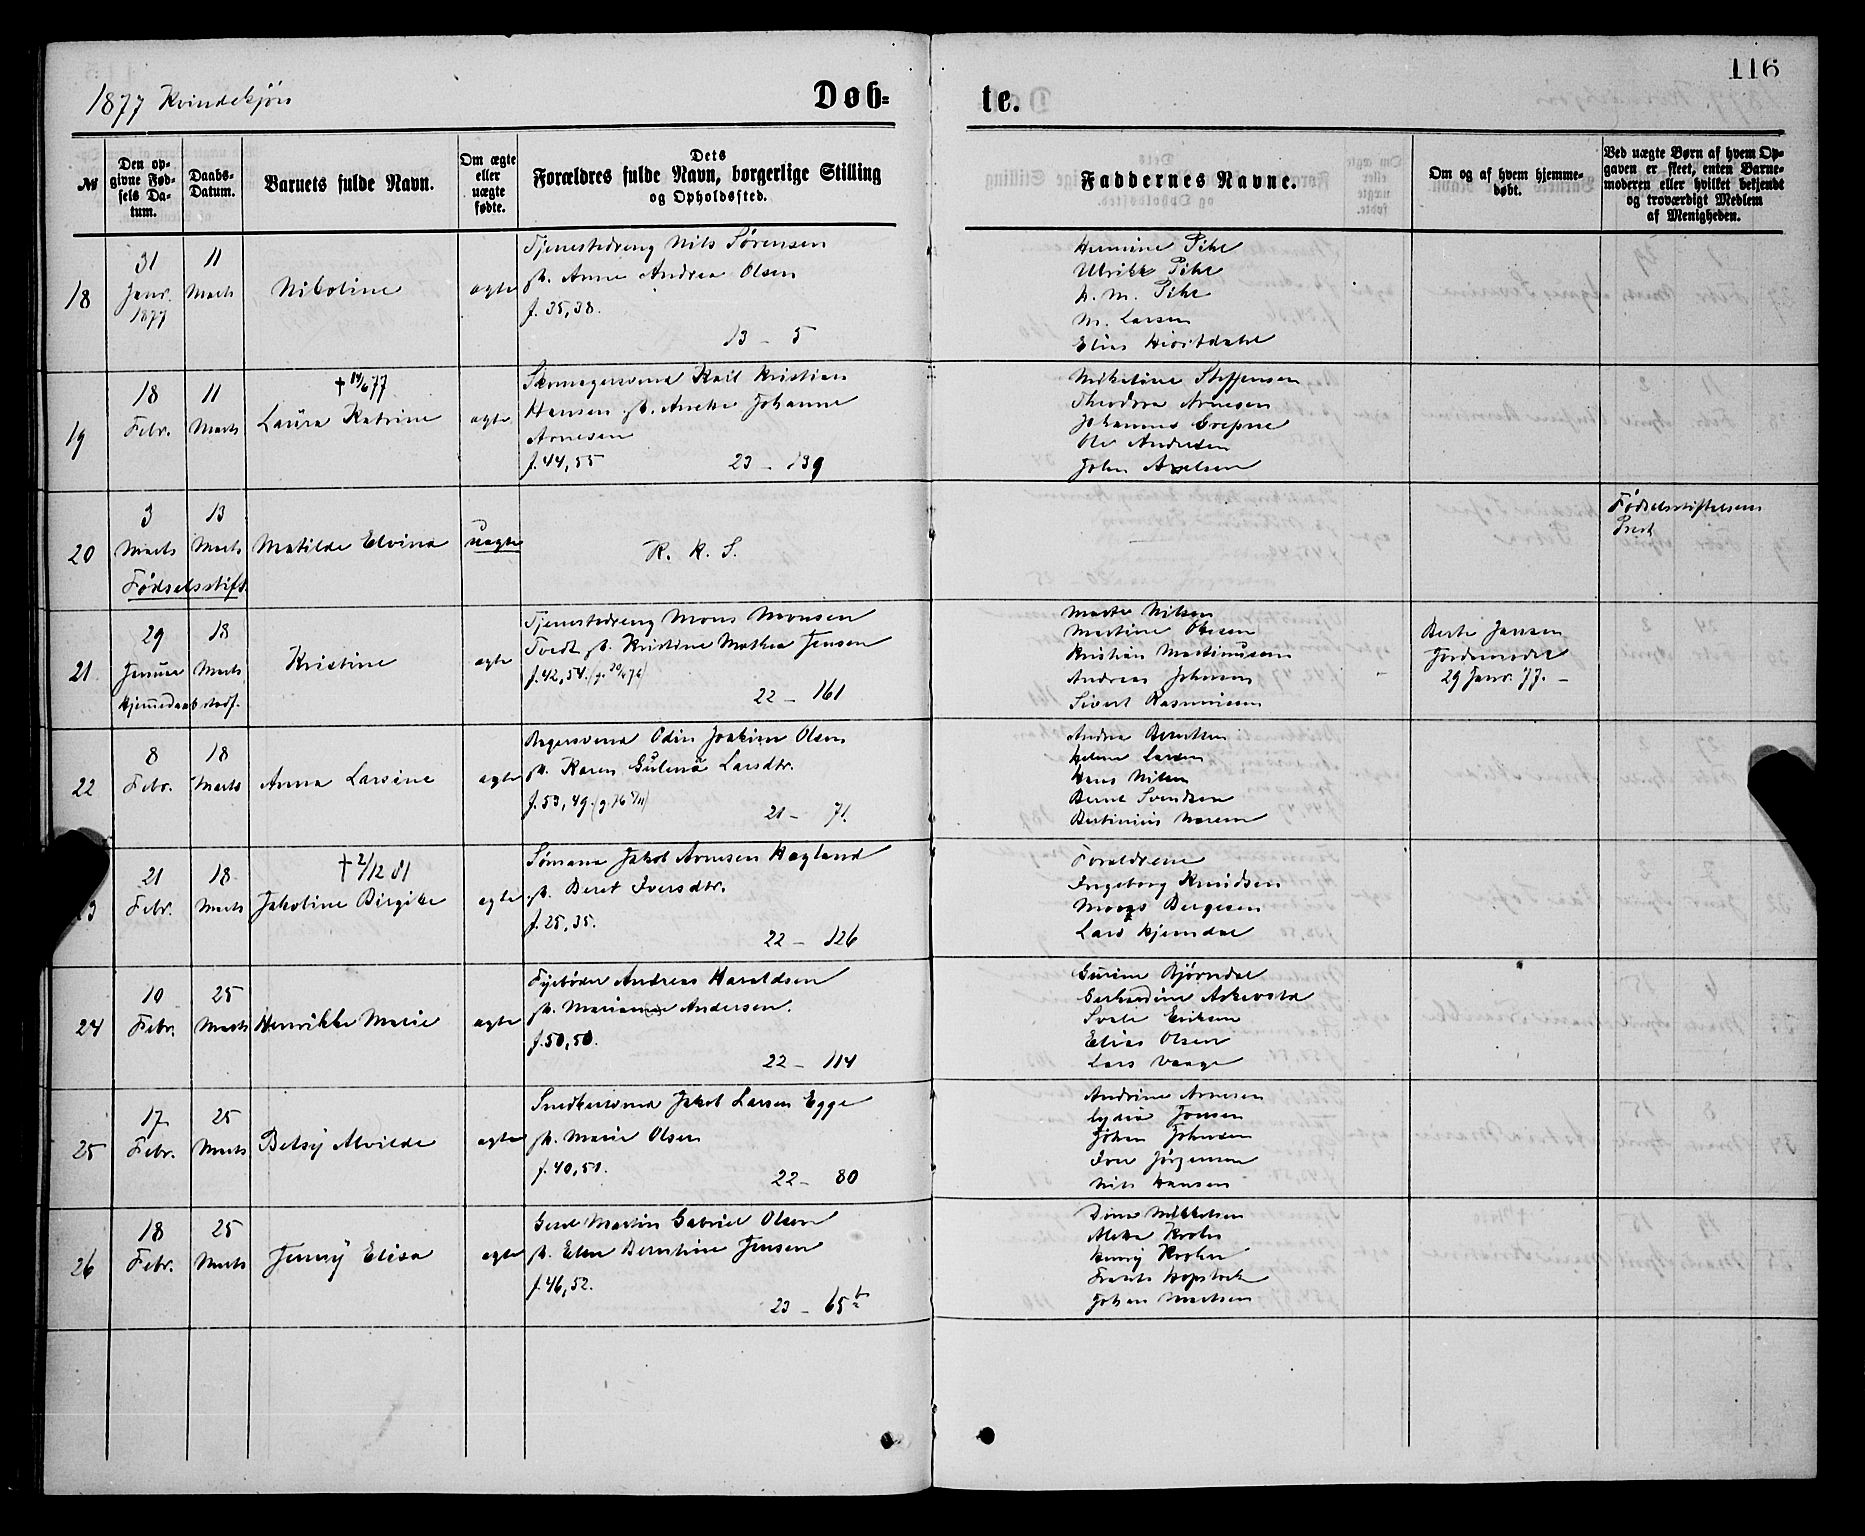 116
1877 Kvindekjøn
Døb-
te.
№
Den op-
givne Fød-
sels Da-
tum.
Daabs-
Datum.
Barnets fulde Navn.
Om ægte
eller
uægte
fødte.
Dets
Forældres fulde Navn, borgerlige Stilling
og Opholdssted.
Faddernes Navne.
Om og af hvem hjemme-
døbt.
Ved uægte Børn af hvem Op-
gaven er skeet, enten Barne-
moderen eller hvilket bekjendt
og troværdigt Medlem
af Menigheden.
18
31
Janr.
1877
11
Marts
Nikoline
ægte
Tjenestedreng Nils Sørensen
Anne Andrea Olsen
f. 35, 38.
13 - 5
Hermine Pihl
Ulrikk Pihl
M. Pihl
M. Larsen
Elias
19
18
Febr.
11
Marts
† 14/6 77
Laura Katrine
ægte
Skomagersvend Karl Kristian
Hansen Johanne
Arnesen
f. 44, 55
23 - 139
Nikoline Steffensen
Theodora Arnesen
Johannes
Ole Andersen
John Axelsen
20
3
Marts
Fødselsstift.
13
Marts
Matilde Elvina
uægte
R. K. S.
Fødselsstiftelsens
Prest
21
29
Januar
hjemmedaab stadf.
18
Marts
Kristine
ægte
Tjenestedreng Mons Monsen
Tvedt Kristine Mathea Jensen
f. 42, 54.
22 - 161
Nilsen
Martine Olsen
Kristian Martinusen
Andreas Johnsen
Sivert Rasmussen
Berte Jansen
Jordemoder
29 Janr. 77. -
22
8
Febr.
18
Marts
Anna Larsine
ægte
Bagersvend Odin Joakim Olsen
Karen Larsdtr.
f. 53, 49.
21 - 71.
Andrea Berntsen
Helene Larsen
Hans Nilsen
Bernt Svendsen
21
Febr.
18
Marts
† 2/12 81
Jakobine Birgitte
ægte
Sømand Jakob Arnesen Hagland
Beret Iversdtr.
f. 25, 35.
22 - 126
Forældrene
Ingeborg Knudsen
Børgesen
Lars
24
10
Febr.
25
Marts
Henrikke Marie
ægte
Fyrbøder Andreas Haraldsen
Andersen.
f. 50, 50.
22 - 114
Gurine Bjørndal
Eriksen
Elias Olsen
Lars Vaage
25
17
Febr.
25
Marts
Betsy Alvilde
ægte
Snedkersvend Jakob Larsen Egge
Marie Olsen
f. 40, 51.
22 - 80
Andrine Arnesen
Lydia Jonsen
Johan Johnsen
Iver Jørgensen
Nils Hansen
26
18
Febr.
25
Marts
Jenny Elisa
ægte
Martin Gabriel Olsen
Elen Berntine Jensen
f. 46, 52.
23 - 65 b
Dina Mikkelsen
Krohn
Henry Krohn
Hopstock
Johan